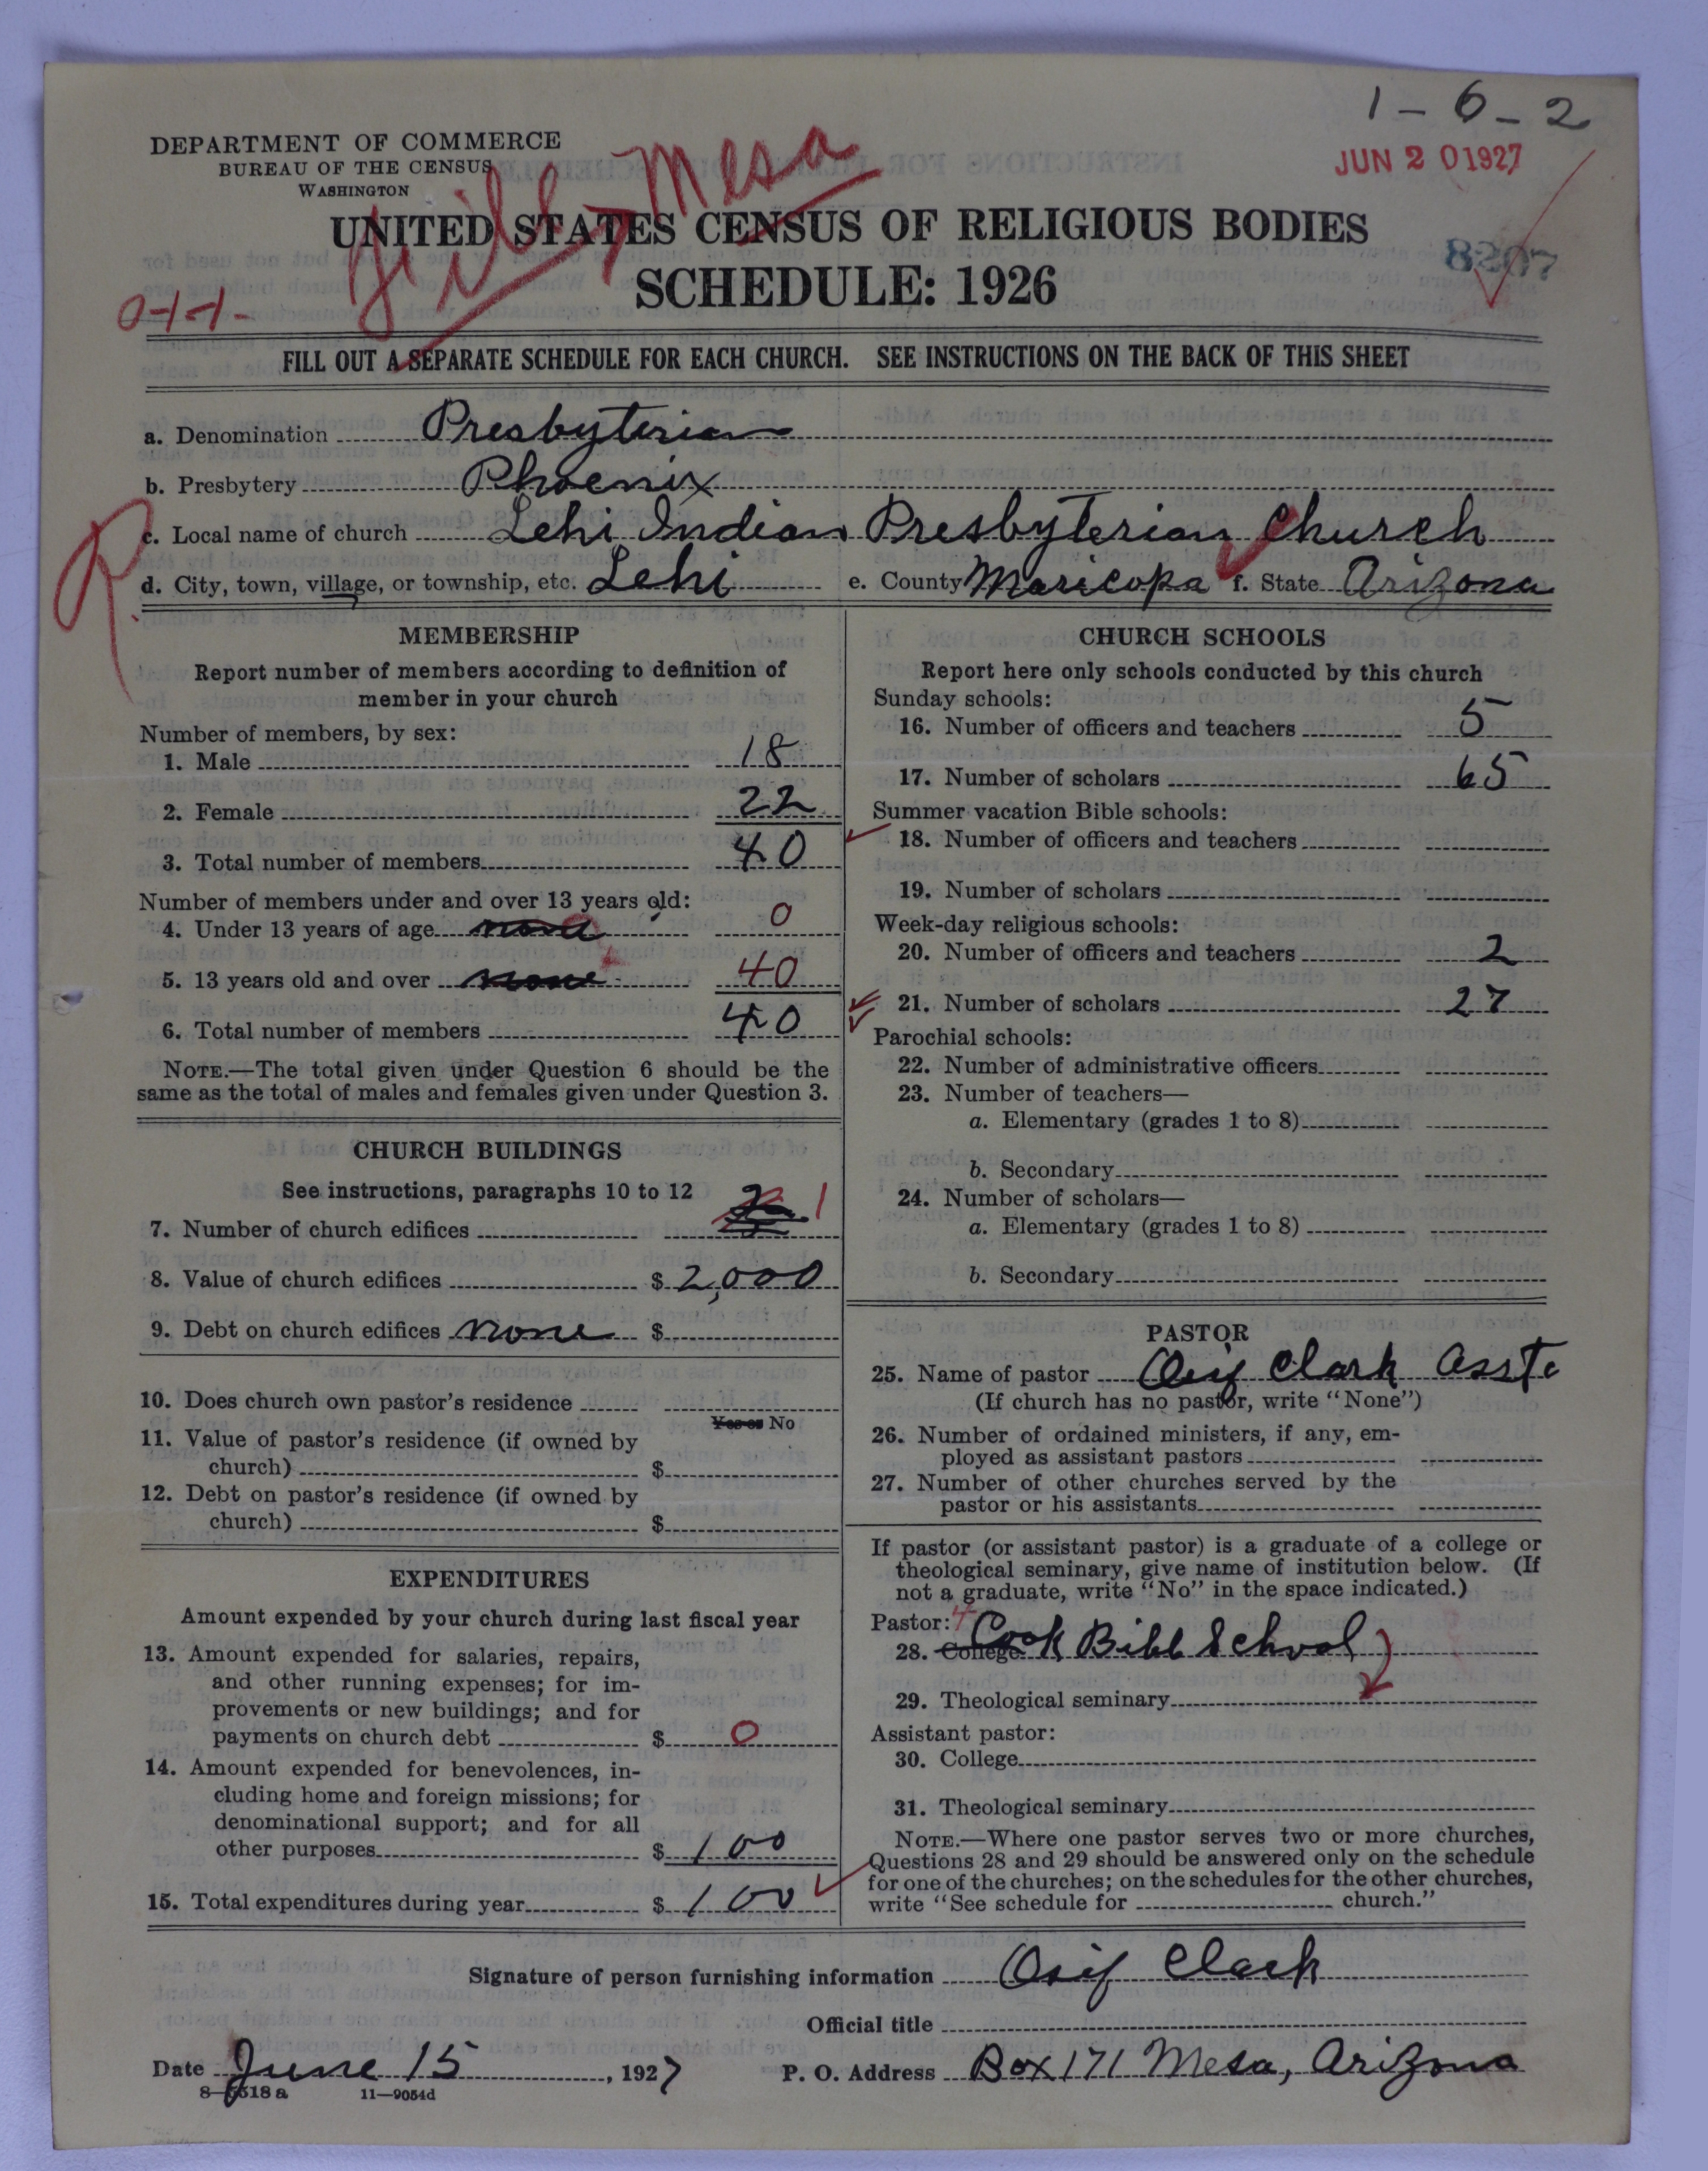 1-6-2
DEPARTMENT OF COMMERCE
BUREAU OF THE CENSUS
WASHINGTON
Mesa
JUN 20 1927
UNITED STATES CENSUS OF RELIGIOUS BODIES
8207
SCHEDULE: 1926
FILL OUT A SEPARATE SCHEDULE FOR EACH CHURCH. SEE INSTRUCTIONS ON THE BACK OF THIS SHEET
a. Denomination Presbyterian
b. Presbytery Phoenix
R.
c. Local name of church Lehi Indian Presbyterian Church
d. City, town, village, or township, etc. Lehi e. County Maricopa f. State Arizona
MEMBERSHIP
Report number of members according to definition of
member in your church
Number of members, by sex:
1. Male 18
2. Female 22
3. Total number of members 40
Number of members under and over 13 years old:
4. Under 13 years of age none 0
5. 13 years old and over none 40
6. Total number of members 40
NOTE.—The total given under Question 6 should be the
same as the total of males and females given under Question 3.
CHURCH BUILDINGS
See instructions, paragraphs 10 to 12
7. Number of church edifices 2 1
8. Value of church edifices $ 2,000
9. Debt on church edifices none $
10. Does church own pastor's residence
Yes or No
11. Value of pastor's residence (if owned by
church) $
12. Debt on pastor's residence (if owned by
church) $
EXPENDITURES
Amount expended by your church during last fiscal year
13. Amount expended for salaries, repairs,
and other running expenses; for im-
provements or new buildings; and for
payments on church debt $ 0
14. Amount expended for benevolences, in-
cluding home and foreign missions; for
denominational support; and for all
other purposes $ 100
15. Total expenditures during year $ 100
CHURCH SCHOOLS
Report here only schools conducted by this church
Sunday schools:
16. Number of officers and teachers 5
17. Number of scholars 65
Summer vacation Bible schools:
18. Number of officers and teachers
19. Number of scholars
Week-day religious schools:
20. Number of officers and teachers 2
21. Number of scholars 27
Parochial schools:
22. Number of administrative officers
23. Number of teachers—
a. Elementary (grades 1 to 8)
b. Secondary
24. Number of scholars—
a. Elementary (grades 1 to 8)
b. Secondary
PASTOR
25. Name of pastor Osif Clark Asst
(If church has no pastor, write "None")
26. Number of ordained ministers, if any, em-
ployed as assistant pastors
27. Number of other churches served by the
pastor or his assistants
If pastor (or assistant pastor) is a graduate of a college or
theological seminary, give name of institution below. (If
not a graduate, write "No" in the space indicated.)
Pastor:
28. College Cook Bibl School
29. Theological seminary
Assistant pastor:
30. College
31. Theological seminary
NOTE.—Where one pastor serves two or more churches,
Questions 28 and 29 should be answered only on the schedule
for one of the churches; on the schedules for the other churches,
write "See schedule for church."
Signature of person furnishing information Osif Clark
Official title
Date June 15, 1927 P. O. Address Box 171 Mesa, Arizona
8-5518 a 11-9054d